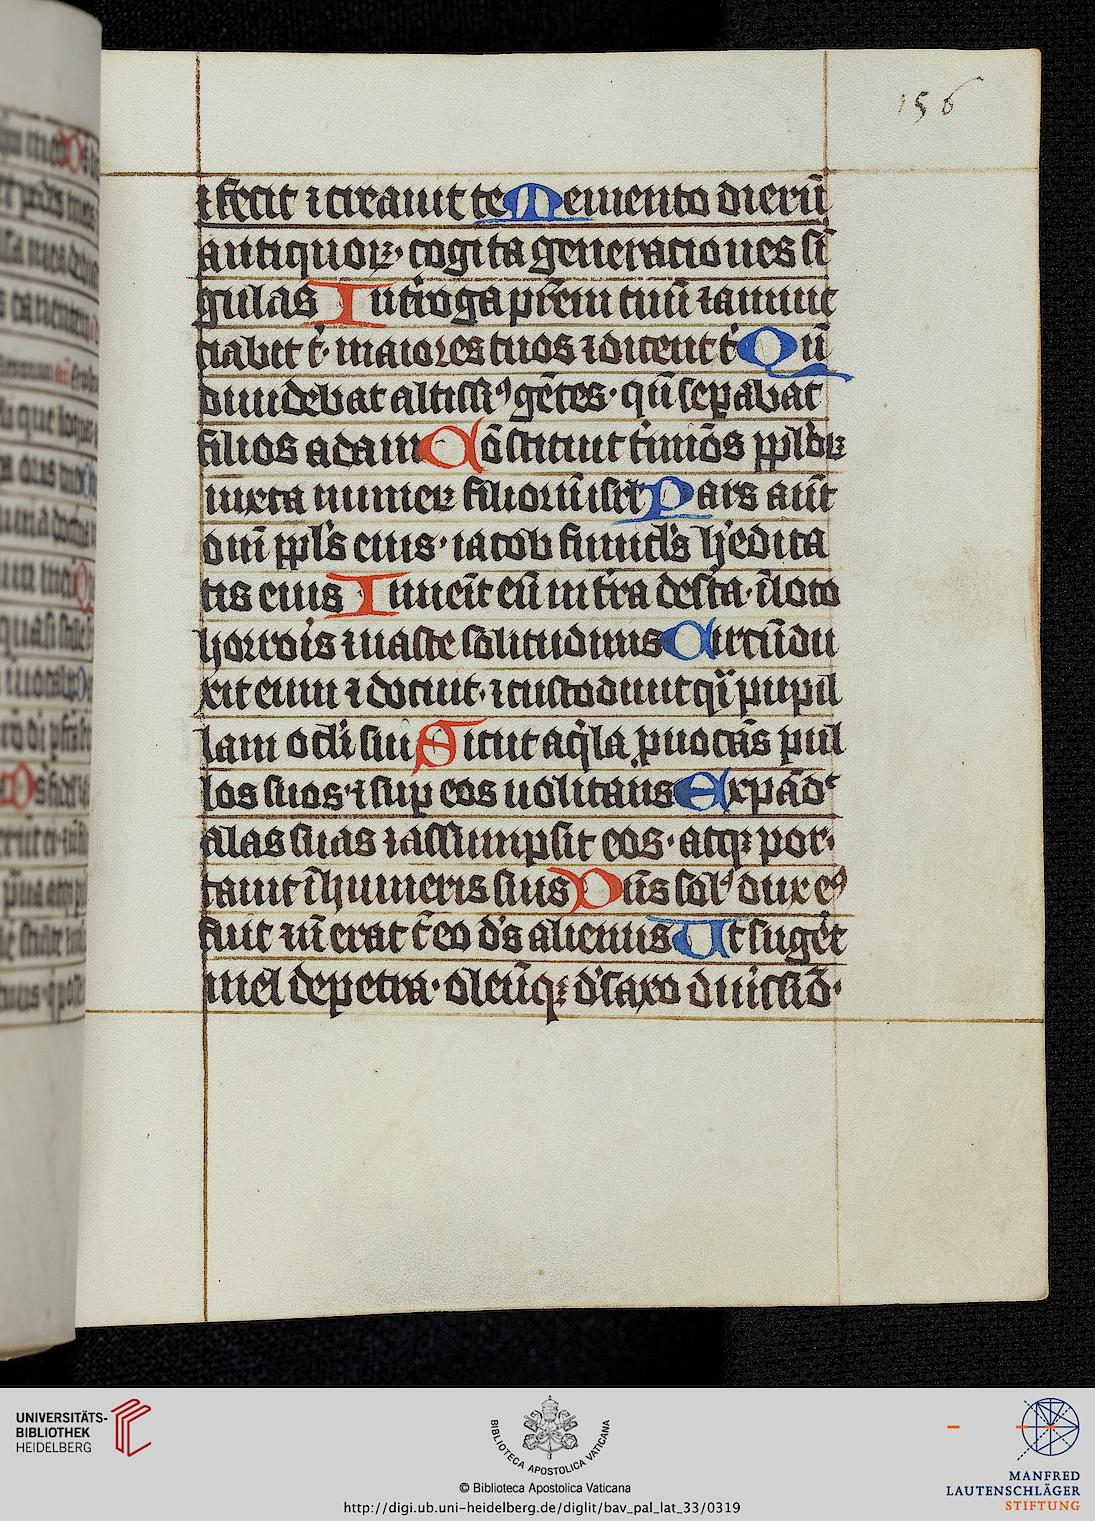 156
⁊ fecit ⁊ creauit te Memento dierū
antiquoꝝ· cogita generaciones sī
gulas Int̾roga pr̄em tuū ⁊ annūc
ciabit t̾· maiores tuos ⁊ dicent t̾ Qn̄
diuidebat altissi⁹ gētes· qn̄ sepabat
filios adam Cōstituit t̾minōs ppl̾oꝝ
iuxta numeꝝ filioꝝ isrl̾ Pars aūt
dn̄i ppl̾s eius· iacob funicl̾s h̾edita
tis eius Inuēit eū in t̾ra des̾ta· ī loco
horrois ⁊ uaste solitudinis Circūdu
xit eum ⁊ docuit· ⁊ custodiuit qͥ pupil
lam ocl̾i sui Sicut aqͥla ꝓuocās pul
los suos· ⁊ suꝑ eos uolitans Expād̾
alas suas ⁊ assumpsit eos· atqꝫ por·
tauit ī humeris suis Dn̄s sol⁹ dux e⁹
fuit ⁊ nō erat c̄ eo de͛s alienus Ut suge͛t
mel de petra· oleūqꝫ d̾ saxo durissīo·
UNIVERSITÄTS-
BIBLIOTHEK
HEIDELBERG
BIBLIOTECA APOSTOLICA VATICANA
© Biblioteca Apostolica Vaticana
http://digi.ub.uni-heidelberg.de/diglit/bav_pal_lat_33/0319
MANFRED
LAUTENSCHLÄGER
STIFTUNG